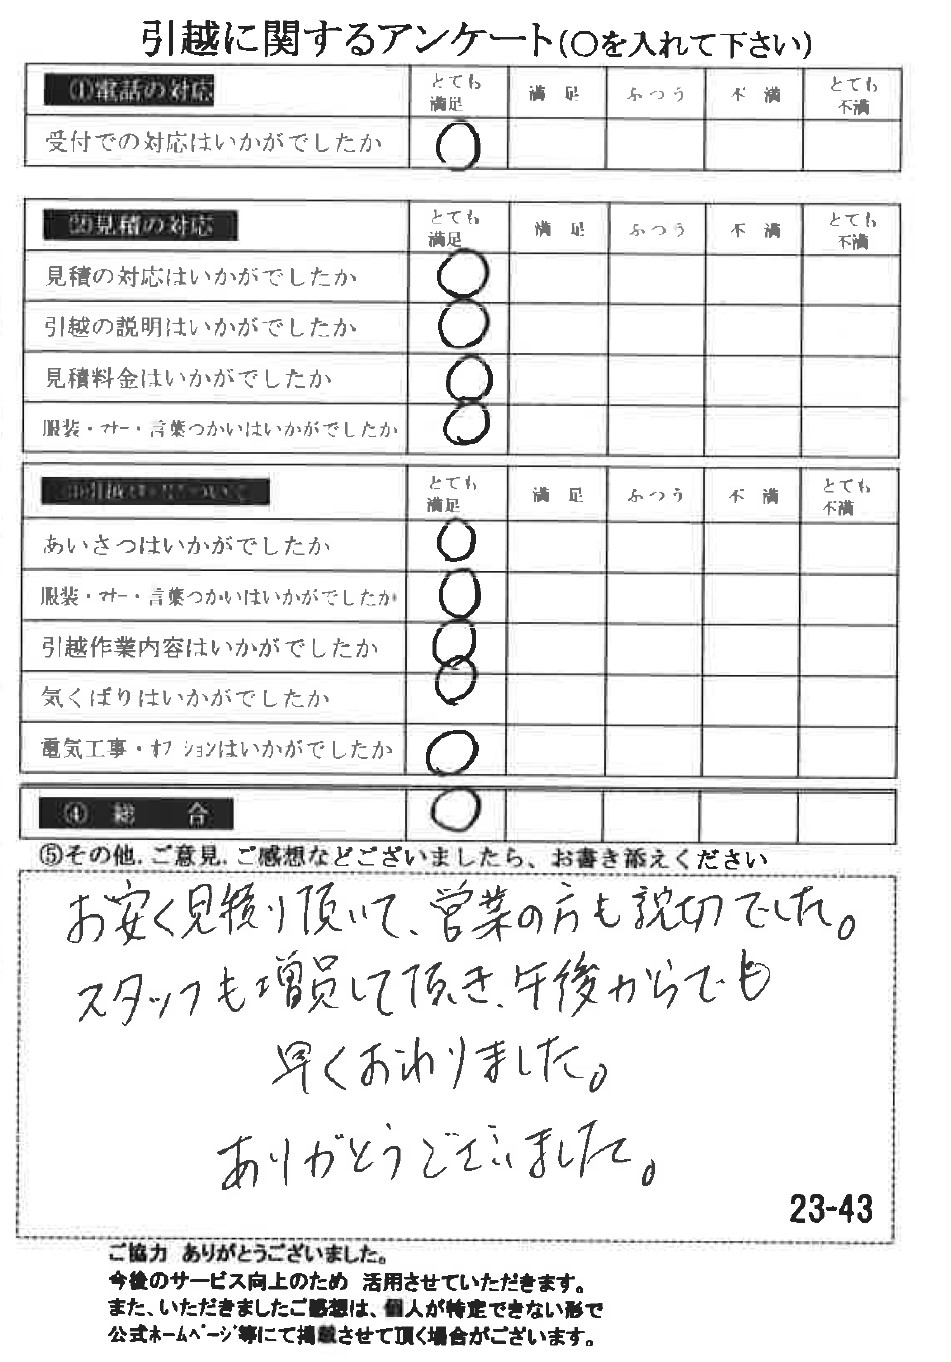 引越に関するアンケート(○を入れて下さい)
①電話の対応 とても満足 満足 ふつう 不満 とても不満
受付での対応はいかがでしたか ○
②見積の対応 とても満足 満足 ふつう 不満 とても不満
見積の対応はいかがでしたか ○
引越の説明はいかがでしたか ○
見積料金はいかがでしたか ○
服装・マナー・言葉つかいはいかがでしたか ○
とても満足 満足 ふつう 不満 とても不満
あいさつはいかがでしたか ○
服装・マナー・言葉つかいはいかがでしたか ○
引越作業内容はいかがでしたか ○
気くばりはいかがでしたか ○
電気工事・オプションはいかがでしたか ○
④ 総 合 ○
⑤その他.ご意見.ご感想などございましたら、お書き添えください
お安く見積り頂いて、営業の方も親切でした。
スタッフも増員して頂き、午後からでも
早くおわりました。
ありがとうございました。
23-43
ご協力 ありがとうございました。
今後のサービス向上のため 活用させていただきます。
また、いただきましたご感想は、個人が特定できない形で
公式ホームページ等にて掲載させて頂く場合がございます。